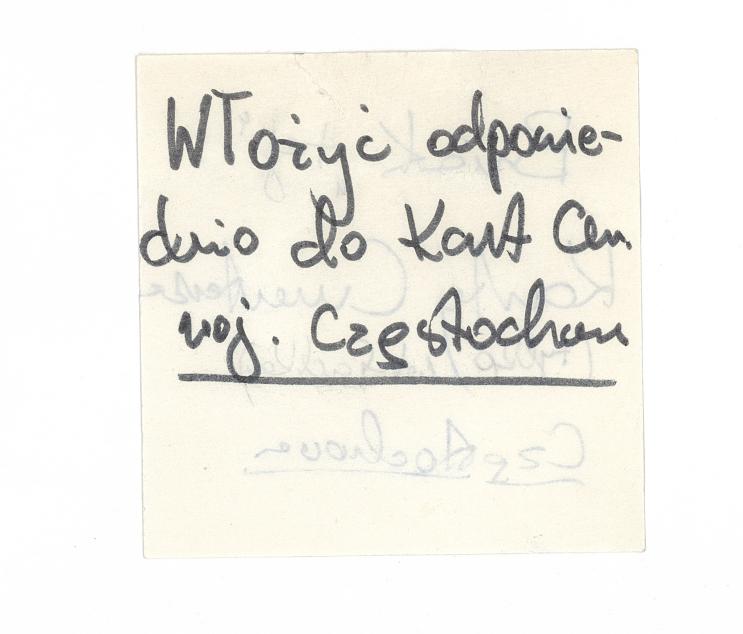 Włożyć odpowie-
dnio do Kart Cm.
woj. Częstochowa